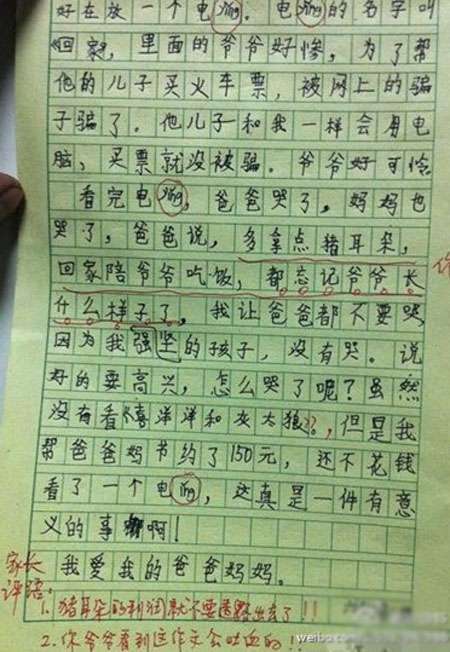 好在放一个电ying。电ying的名字叫
回家，里面的爷爷好惨，为了帮
他的儿子买火车票，被网上的骗
子骗了。他儿子和我一样会用电
脑，买票就没被骗。爷爷好可怜
看完电ying，爸爸哭了，妈妈也
哭了，爸爸说，多拿点猪耳朵，
回家陪爷爷吃饭，都忘记爷爷长
什么样子了。我让爸爸都不要哭
因为我强坚的孩子，没有哭。说
好的要高兴，怎么哭了呢？虽然
没有看喜洋洋和灰太狼，但是我
帮爸爸妈节约了150元，还不花钱
看了一个电ying，这真是一件有意
义的事啊！
我爱我的爸爸妈妈。
家长
评语：
1.猪耳朵的利润就不要透露出去了！！
2.你爷爷看到这作文会吐血的！！